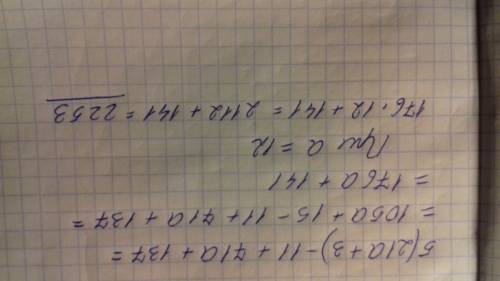 5(21a+3)-11+71a+137=
=105a+15-11+71a+137=
=176a+141
При a=12
176·12+141=2112+141=2253